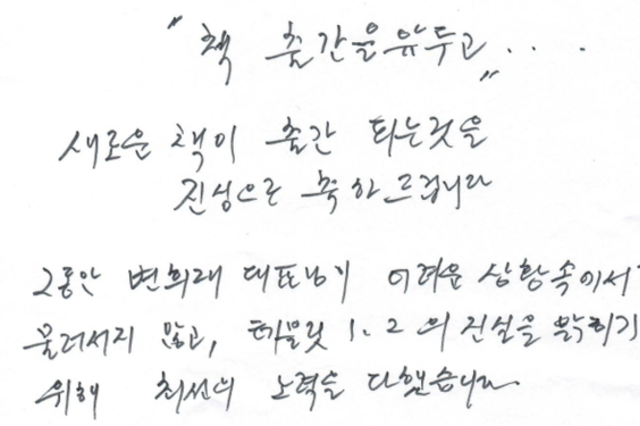 "책 출간을 앞두고 . . . "
새로운 책이 출간 되는것을
진심으로 축하드립니다
그동안 변희재 대표님이 어려운 상황속에서
물러서지 않고, 태블릿 1. 2 의 진실을 밝히기
위해 최선의 노력을 다했습니다.